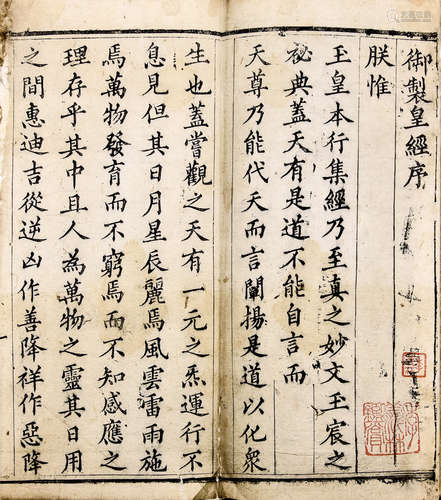 御製皇經序
朕惟
玉皇本行集經乃至真之妙文玉宸之
祕典蓋天有是道不能自言而
天尊乃能代天而言闡揚是道以化衆
生也蓋嘗觀之天有一元之炁運行不
息見但其日月星辰麗焉風雲雷雨施
焉萬物發育而不窮焉而不知感應之
理存乎其中且人為萬物之靈其日用
之間惠迪吉從逆凶作善降祥作惡降